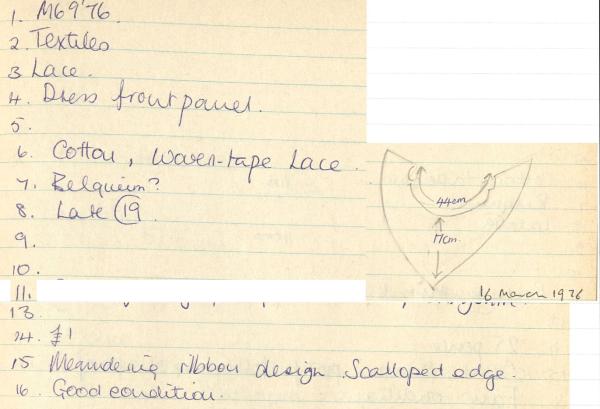 1. M69'76
2. Textiles
3 Lace.
4. Dress front panel.
5.
6. Cotton, woven-tape lace.
7. Belguim?
8. Late 19
9.
10.
44cm
17cm.
16 March 1976
11.
13.
14. £1
15 Meandering ribbon design. Scalloped edge.
16. Good condition.